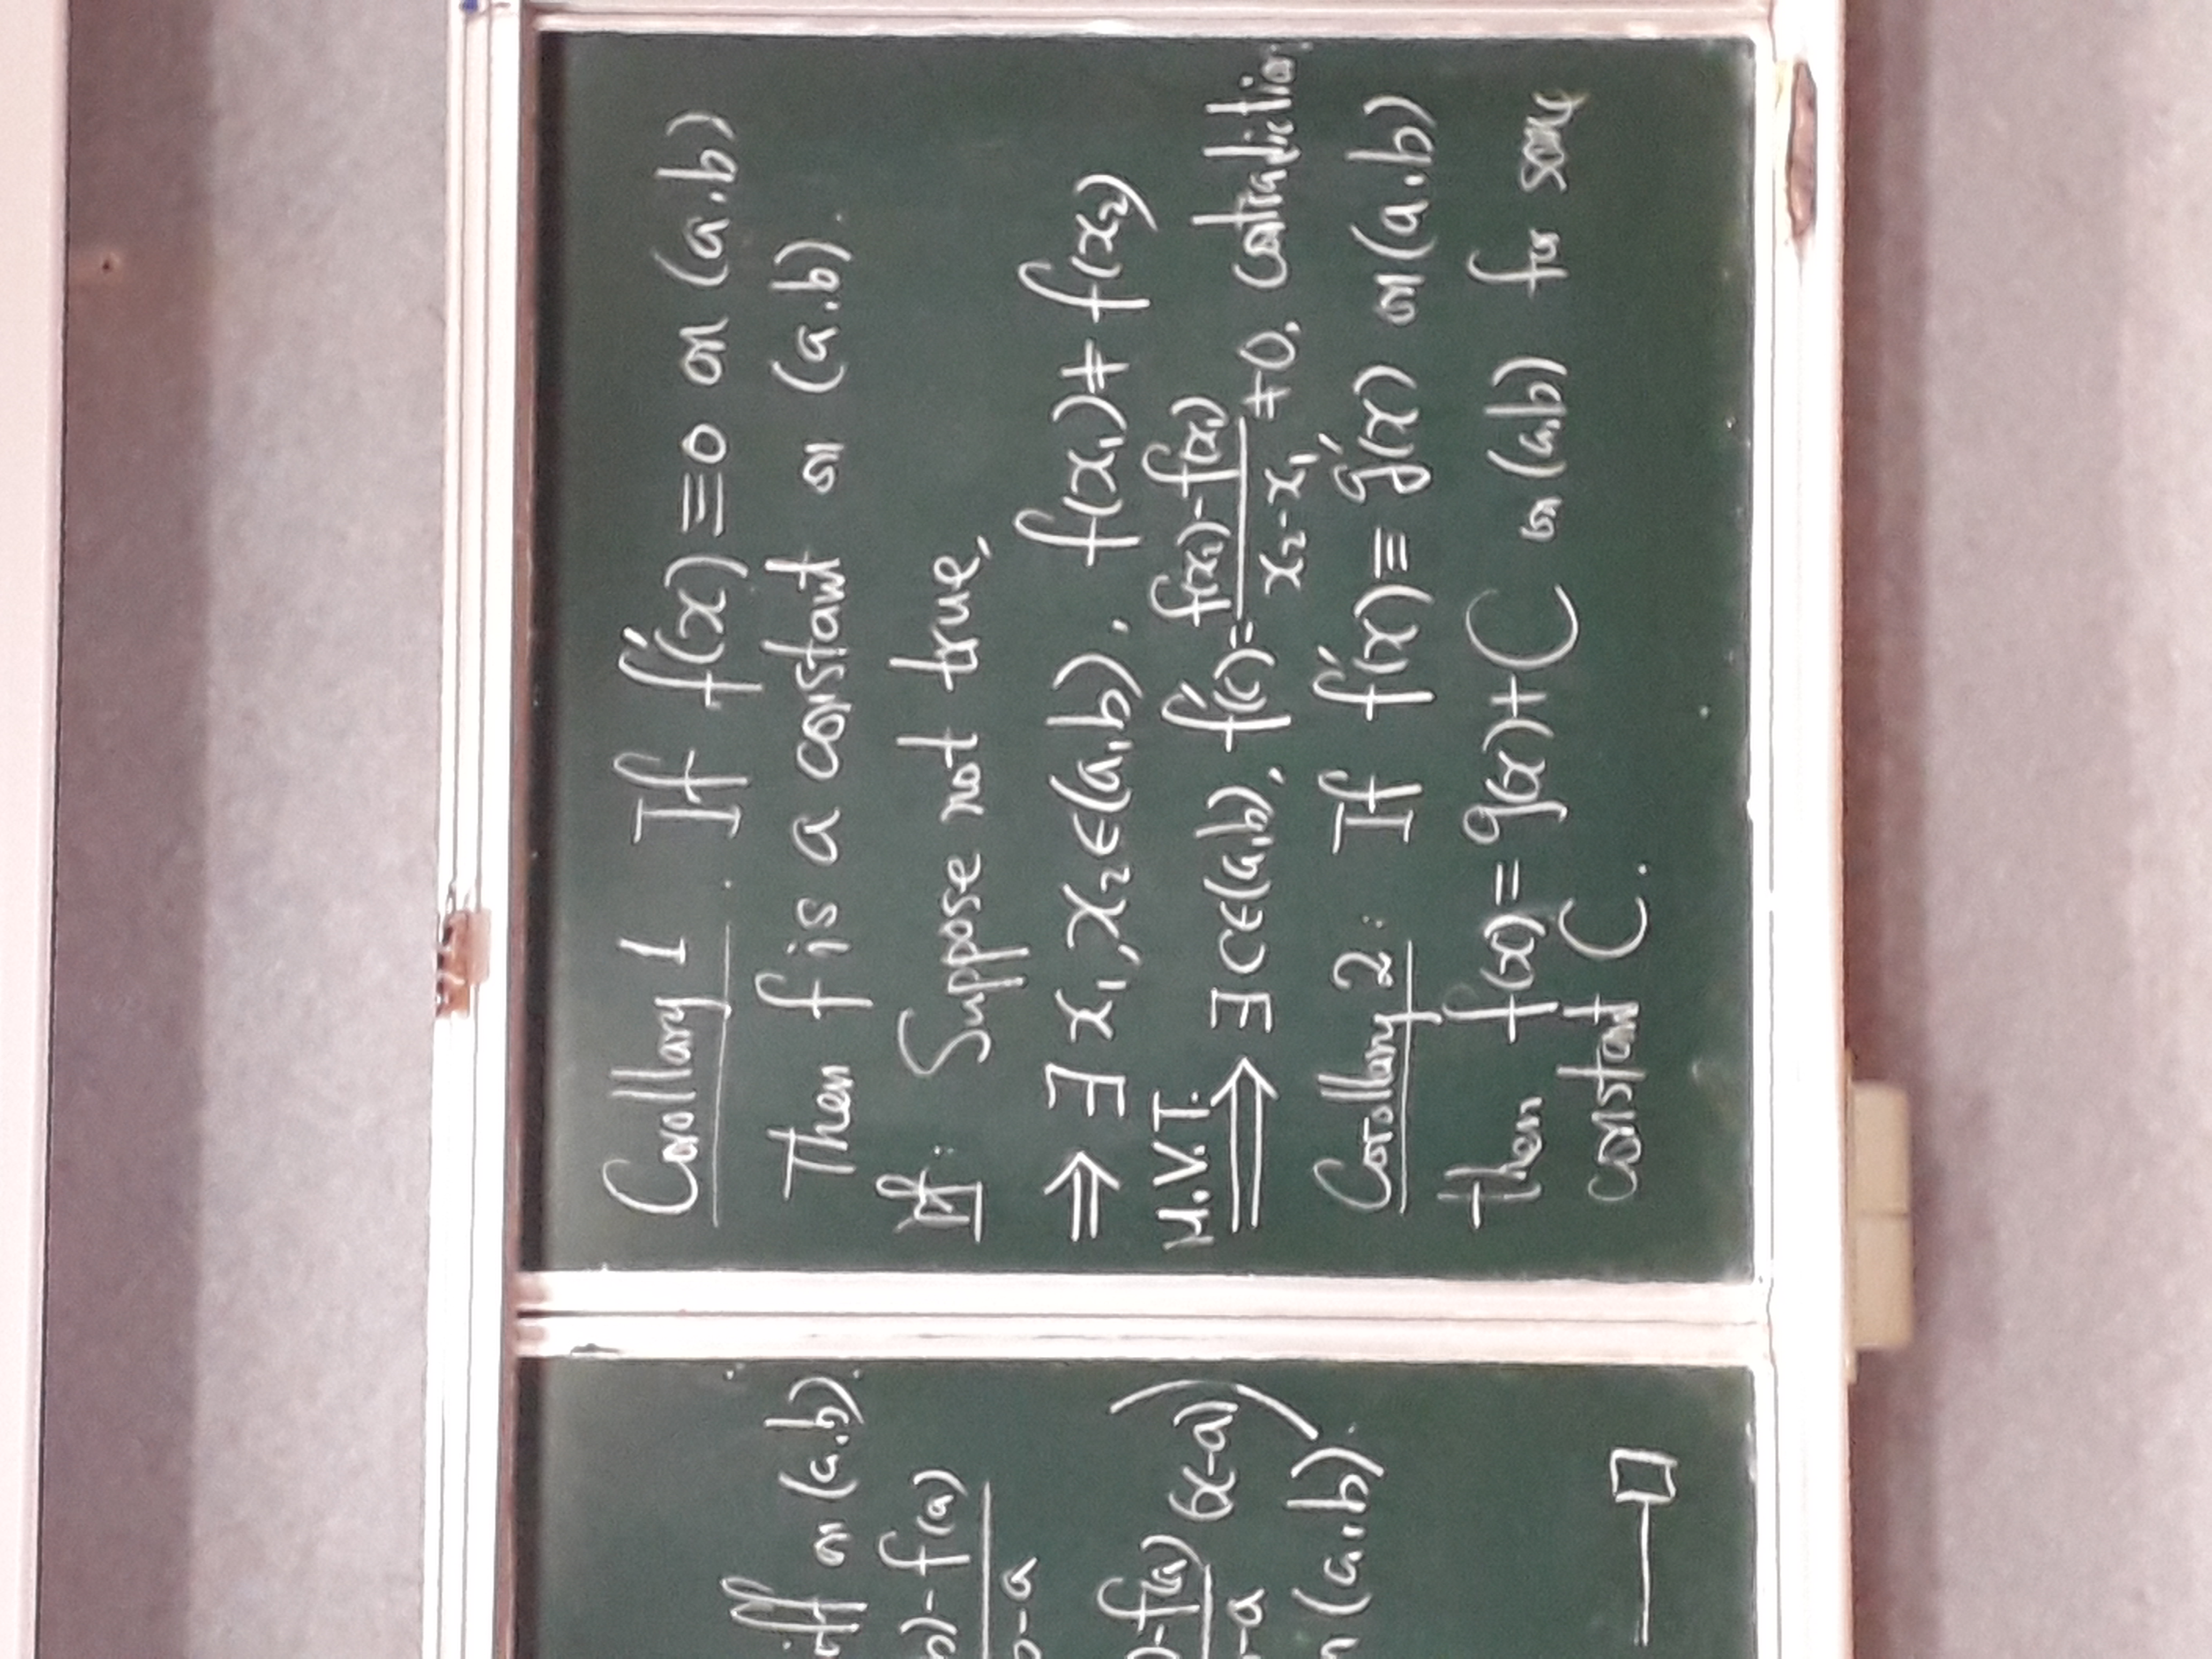 Corollary 1. If f'(x) ≡ 0 on (a.b)
Then f is a constant on (a.b).
pf: Suppose not true,
⇒ ∃ x₁, x₂ ∈ (a,b), f(x₁) ≠ f(x₂)
M.V.T. ⟹ ∃ c ∈ (a,b), f'(c) = f(x₂)-f(x₁) / x₂-x₁ ≠ 0, contradiction
Corollary 2: If f'(x) ≡ g'(x) on (a.b)
then f(x) = g(x) + C on (a,b) for some
constant C.
iff on (a.b).
b)-f(a)
b-a
)-f(a) (x-a))
-a
n (a,b)